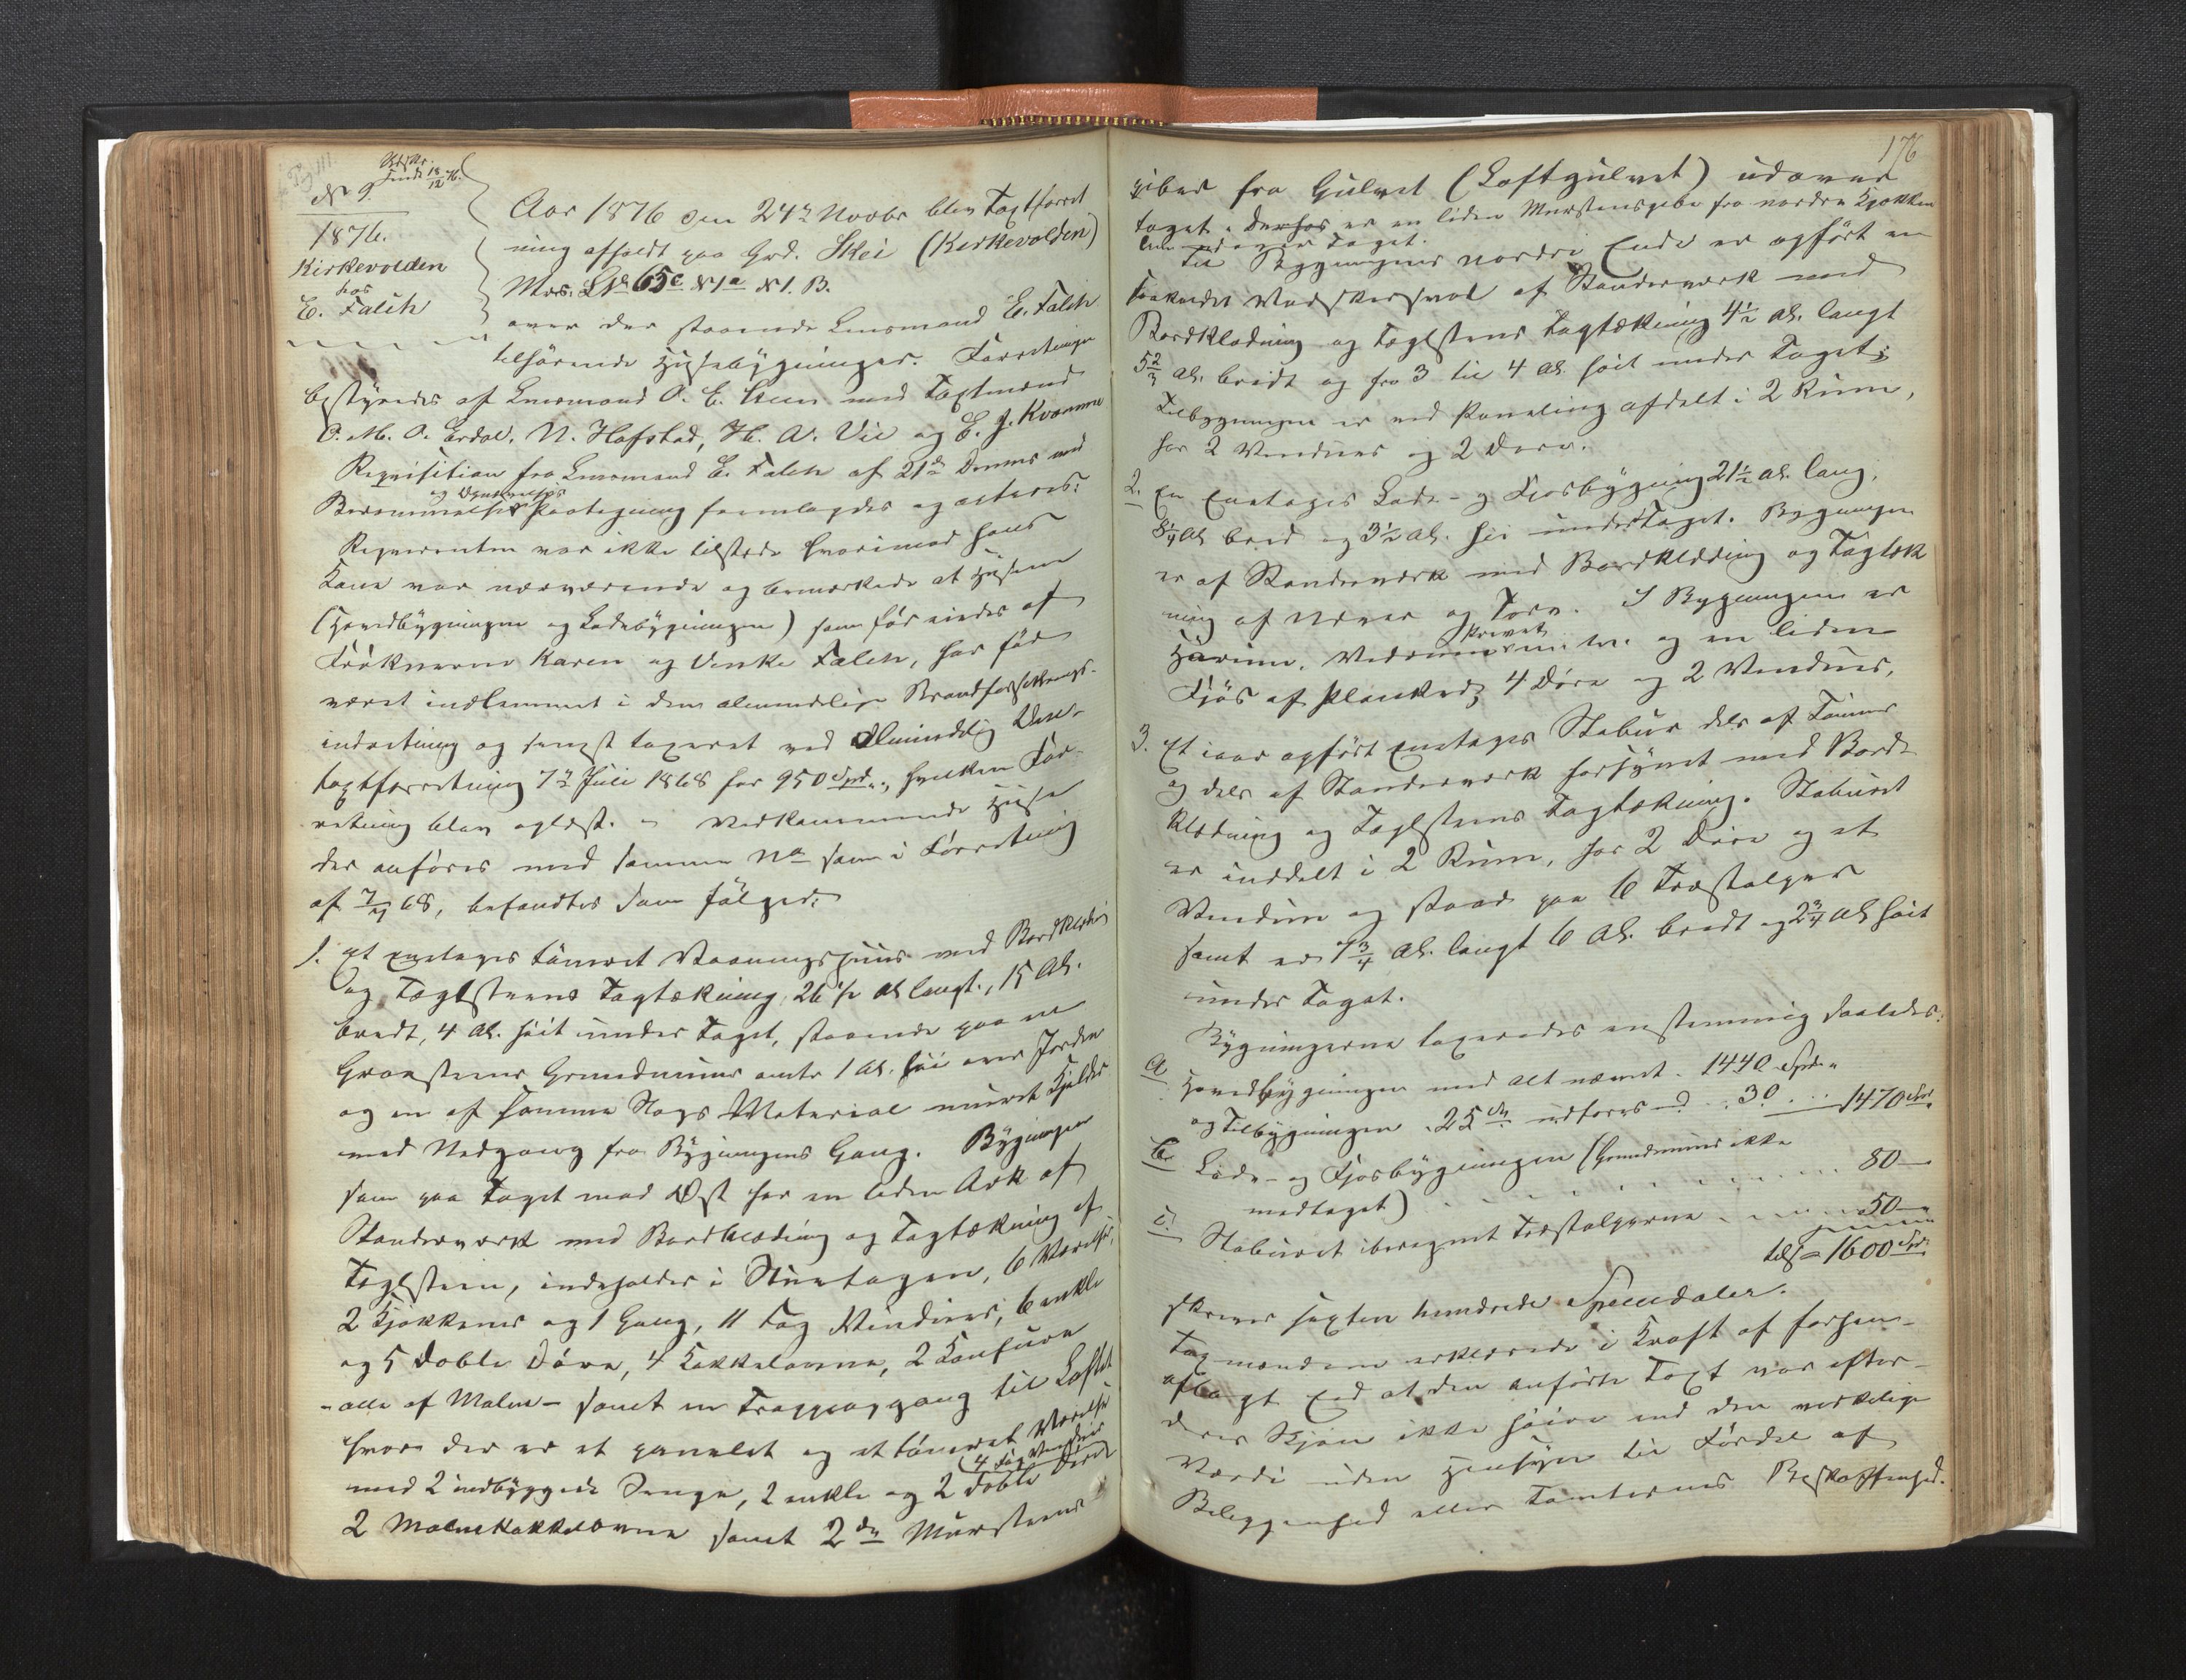 No 9.
1876.
Kirkevolden
hos
E. Falch
Aar 1876 den 24de Novbr blev Taxtforret
ning afholdt paa Grd. Skei (Kirkevolden)
Mar. L No 65c No 1a No 1. B.
over der staaende Lensmand E. Falch
tilhørende Husebygninger. Forretningen
bestyredes af Lensmand med Taxtmænd
O. M. O. Erdal, N. Hafstad, H. A. Vie og E. J. Kvamme
Requisition fra Lensmand E. Falch af 21de Dennes med
Berammelses Paategning fremlagdes og acteres:
Requirenten var ikke tilstede hvorimod hans
Kone var nærværende og bemærkede at Husene
(Hovedbygningen og Ladebygningen) som før eiedes af
Frøknerne Karen og Venke Falch, har før
været indlemmet i den almindelige Brandforsikrings-
indretning og senest taxeret ved Almindelig Om-
taxtforretning 7de Juli 1868 for 950 Spd., hvilken For-
retning blev oplæst. – Vedkommende Huse
der anføres med samme No som i Forretning
af 7/7 68, befandtes som følger:
1. Et eenetages tømret Vaaningshuus med Bordklædn
og Taglsteens Tagtækning, 26 1/2 Al. langt, 15 Al.
bredt, 4 Al. høit under Taget, staaende paa en
Graasteens Grundmuur omtr 1 Al. høi over Jorden
og en af samme Slags Material muret Kjelder
med Nedgang fra Bygningens Gang. Bygningen
som paa Taget mod Øst har en liden Ark af
Standerværk med Bordklædning og Tagtækning af
Taglsteen, indeholder i Stueetagen, 6 Værelser,
2 Kjøkkener og 1 Gang, 11 Fag Vinduer, 6 enkle
og 5 doble Døre, 4 Kakkelovne, 2 Komfurer
– alle af Malm – samt en Trappeopgang til Loftet
hvor der er et panelet og et tømret Værelse
(4 Fag Vinduer
med 2 indbyggede Senge, 2 enkle og 2 doble Døre
2 Malmkakkelovne samt 2de Mursteens
176
piber fra Gulvet (Loftgulvet) udover
Taget. Derhos er en liden Murstenspibe fra nordre Kjøkken
udover Taget.
Til Bygningens nordre Ende er opført en
saakaldet Vadskersval af Standerværk med
Bordklædning og Taglsteens Tagtækning 4 1/2 Al. langt
5 2/3 Al. bredt og fra 3 til 4 Al. høit under Taget;
Tilbygningen er ved Paneling afdelt i 2 Rum,
har 2 Vinduer og 2 Døre.
2. En Eenetages Lade- og Fjosbygning 21 1/2 Al. lang,
8 1/4 Al. bred og 3 1/2 Al. høi under Taget. Bygningen
er af Standerværk med Bordklædning og Tagtæk
ning af Næver og Torv. I Bygningen er
Privet
Hørum, Vedrum og en liden
Fjøs af Planker; 4 Døre og 2 Vinduer.
3. Et iaar opført Eenetages Stabur dels af Tømmer
og dels af Standerværk forsynet med Bord-
klædning og Taglsteens Tagtækning. Staburet
er inddelt i 2 Rum, har 2 Døre og et
Vindue og staar paa 6 Træstolper
samt er 7 3/4 Al. langt 6 Al. bredt og 2 3/4 Al. høit
under Taget.
Bygningerne taxeredes enstemmig saaledes:
a. Hovedbygningen med Alt nævnt. 1440 Spd.
og Tilbygningen udføres 30 . . . 1470 Spd.
b. Lade- og Fjosbygningen (Grundmuur ikke
medtaget) . . . . . . 80 –
c. Staburet iberegnet Træstolperne . . . . 50 –
tils = 1600 Spd.
skriver sexten hundrede Speciedaler.
Taxmændene erklærede i Kraft af forhen-
aflagt Eed at den anførte Taxt var efter
deres Skjøn ikke høiere end den virkelige
Værdi uden Hensyn til Fordel af
Beliggenhed eller Tomternes Beskaffenhed.